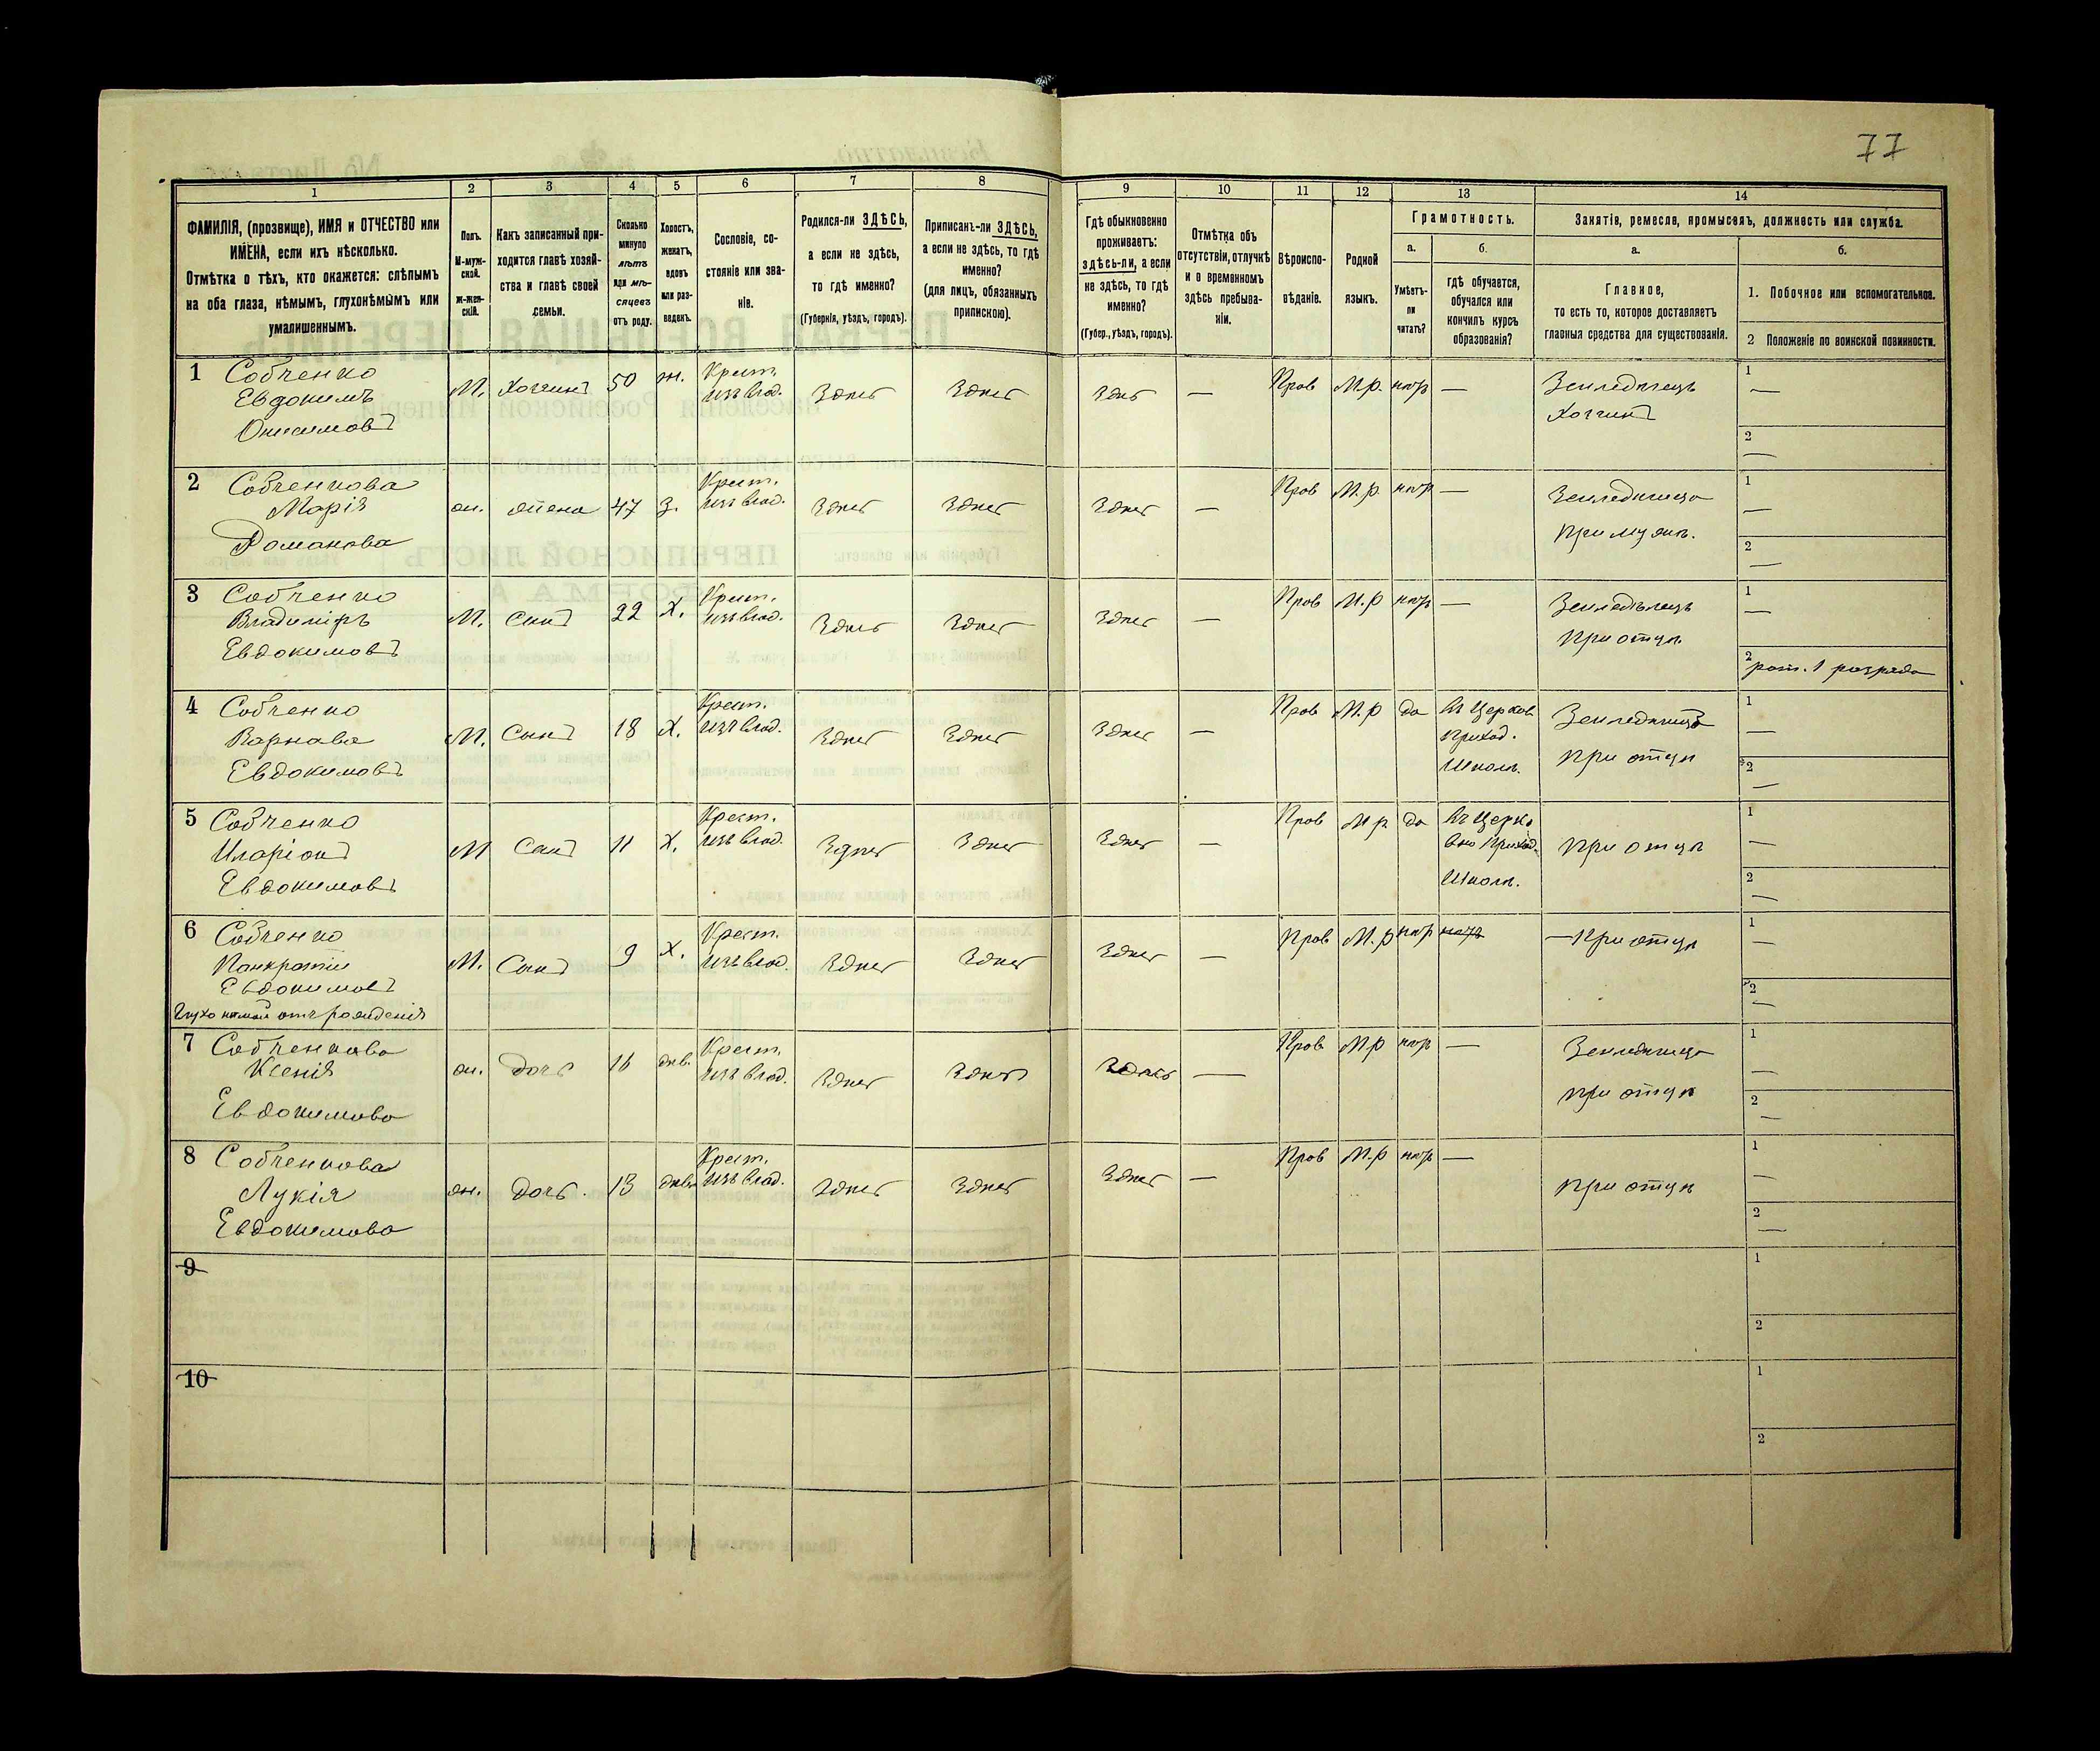 77
1 2 3 4 5 6 7 8 9 10 11 12 13 14
ФАМИЛІЯ, (прозвище), ИМЯ и ОТЧЕСТВО или
ИМЕНА, если ихъ нѣсколько.
Отмѣтка о тѣхъ, кто окажется: слѣпымъ
на оба глаза, нѣмымъ, глухонѣмымъ или
умалишеннымъ.
Полъ.
М-муж-
ской.
Ж-жен-
скій.
Какъ записанный при-
ходится главѣ хозяй-
ства и главѣ своей
семьи.
Сколько
минуло
лѣтъ
или мѣ-
сяцевъ
отъ роду.
Холостъ,
женатъ,
вдовъ
или раз-
веденъ.
Сословіе, со-
стояніе или зва-
ніе.
Родился-ли ЗДѢСЬ,
а если не здѣсь,
то гдѣ именно?
(Губернія, уѣздъ, городъ).
Приписанъ-ли ЗДѢСЬ,
а если не здѣсь, то гдѣ
именно?
(для лицъ, обязанныхъ
припискою).
Гдѣ обыкновенно
проживаетъ:
здѣсь-ли, а если
не здѣсь, то гдѣ
именно?
(Губер., уѣздъ, городъ).
Отмѣтка объ
отсутствіи, отлучкѣ
и о временномъ
здѣсь пребыва-
ніи.
Вѣроиспо-
вѣданіе.
Родной
языкъ.
Грамотность.
а.
Умѣетъ-
ли
читать?
б.
гдѣ обучается,
обучался или
кончилъ курсъ
образованія?
Занятія, ремесло, промыселъ, должность или служба.
а.
Главное,
то есть то, которое доставляетъ
главныя средства для существованія.
б.
1. Побочное или вспомогательное.
2 Положеніе по воинской повинности.
1 Собченко
Евдокимъ
Онисимовъ
М. Хозяинъ 50 ж. Крест.
изъ влад. Здѣсь Здѣсь Здѣсь — Прав М.р. нѣтъ —
Земледѣлецъ
Хозяинъ
1 —
2 —
2 Собченкова
Марія
Романова
ж. жена 47 з. Крест.
изъ влад. Здѣсь Здѣсь Здѣсь — Прав М.р. нѣтъ —
при мужѣ.
1 —
2 —
3 Собченко
Владиміръ
Евдокимовъ
М. Сынъ 22 Х. Крест.
изъ влад. Здѣсь Здѣсь Здѣсь — Прав М.р нѣтъ —
Земледѣлецъ
при отцѣ
1 —
2 рат. 1 разряда
4 Собченко
Варнава
Евдокимовъ
М. Сынъ 18 Х. Крест.
изъ влад. Здѣсь Здѣсь Здѣсь — Прав М.р да Въ Церков.
Приход.
Школѣ.
Земледѣлецъ
при отцѣ
1 —
2 —
5 Собченко
Иларіонъ
Евдокимовъ
М Сынъ 11 Х. Крест.
изъ влад. Здѣсь Здѣсь Здѣсь — Прав М р да Въ Церко
вно Приход.
Школѣ.
при отцѣ
1 —
2 —
6 Собченко
Панкратій
Евдокимовъ
Глухо нѣмой отъ рожденія
М. Сынъ 9 Х. Крест.
изъ влад. Здѣсь Здѣсь Здѣсь — Прав М.р нѣтъ нѣтъ
— при отцѣ
1 —
2 —
7 Собченкова
Ксенія
Евдокимова
ж. дочь 16 дѣв. Крест.
изъ влад. Здѣсь Здѣсь Здѣсь — Прав М р нѣтъ —
при отцѣ
1 —
2 —
8 Собченкова
Лукія
Евдокимова
ж. дочь. 13 дѣв. Крест.
изъ влад. Здѣсь Здѣсь Здѣсь — Прав М.р нѣтъ —
при отцѣ
1 —
2 —
9
1
2
10
1
2